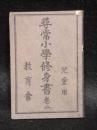 児童用
尋常小學修身書 巻二
教育會